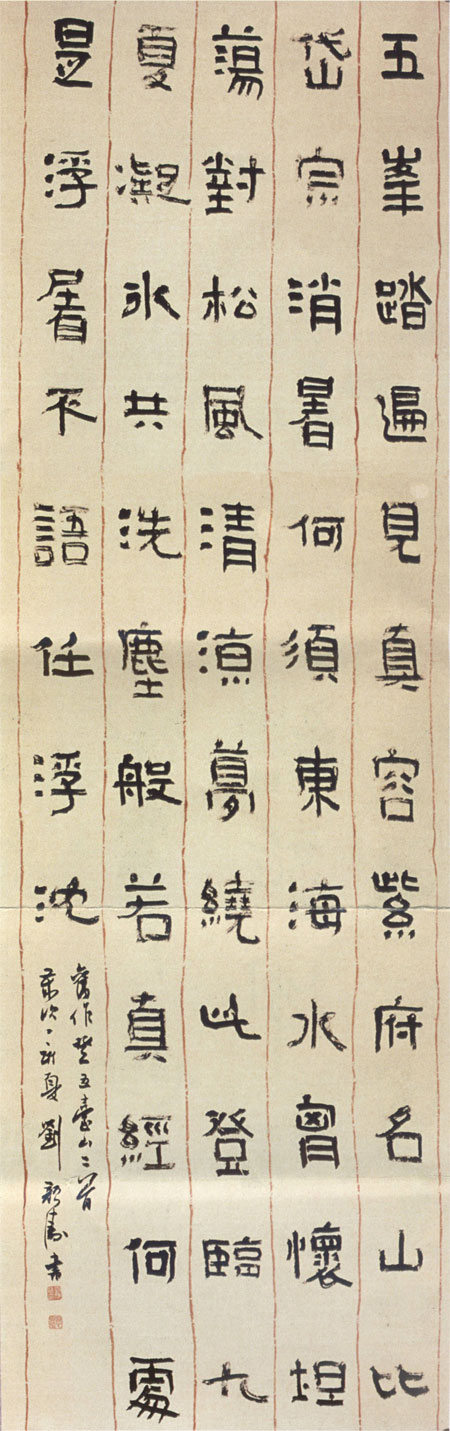 五峯踏遍見真容紫府名山比
岱宗消暑何須東海水曾懷坦
蕩對松風清涼夢繞此登臨九
夏凝冰共洗塵般若真經何處
是浮屠不語任浮沈
舊作登五臺山二首
歲次夏劉書